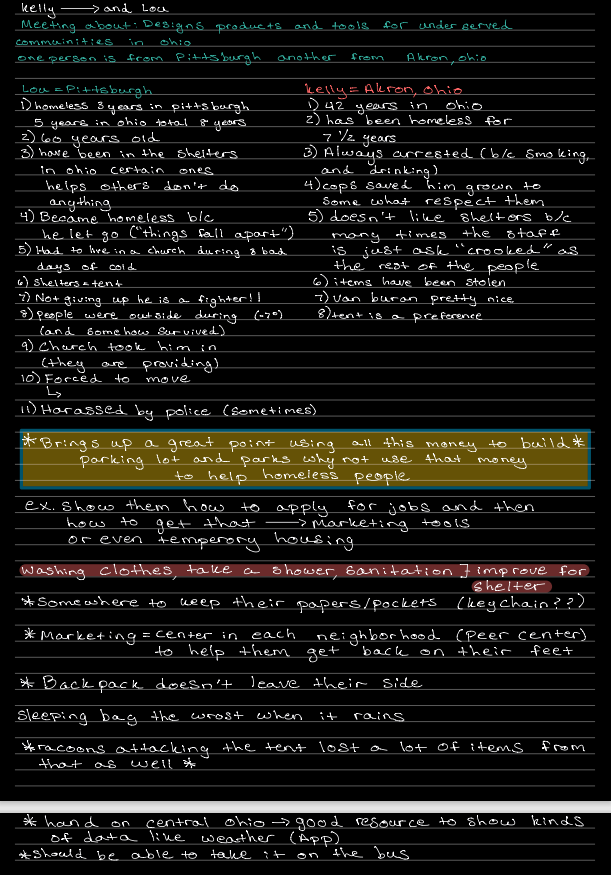 kelly → and Lou
Meeting about: Designs products and tools for under served
commuinities in ohio
one person is from Pittsburgh another from Akron, ohio
Lou = Pittsburgh
1) homeless 3 years in pittsburgh
5 years in ohio total 8 years
2) 60 years old
3) have been in the shelters
in ohio certain ones
helps others don't do
anything
4) Became homeless b/c
he let go ("things fall apart")
5) Had to live in a church during 3 bad
days of cold
6) Shelters = tent
7) Not giving up he is a fighter!!
8) People were outside during (-7°)
(and somehow survived)
9) Church took him in
(they are providing)
10) Forced to move
↳
11) Harassed by police (sometimes)
kelly = Akron, Ohio
1) 42 years in ohio
2) has been homeless for
7 1/2 years
3) Always arrested (b/c smoking,
and drinking)
4) cops saved him grown to
some what respect them
5) doesn't like shelters b/c
many times the staff
is just ask "crooked" as
the rest of the people
6) items have been stolen
7) Van buran pretty nice
8) tent is a preference
*Brings up a great point using all this money to build*
parking lot and parks why not use that money
to help homeless people
ex. Show them how to apply for jobs and then
how to get that → marketing tools
or even temperory housing
washing clothes, take a shower, sanitation } improve for
shelter
*Somewhere to keep their papers/pockets (keychain??)
*Marketing = center in each neighborhood (peer center)
to help them get back on their feet
* Back pack doesn't leave their side
Sleeping bag the wrost when it rains
*racoons attacking the tent lost a lot of items from
that as well *
* hand on central ohio → good resource to show kinds
of data like weather (App)
*should be able to take it on the bus